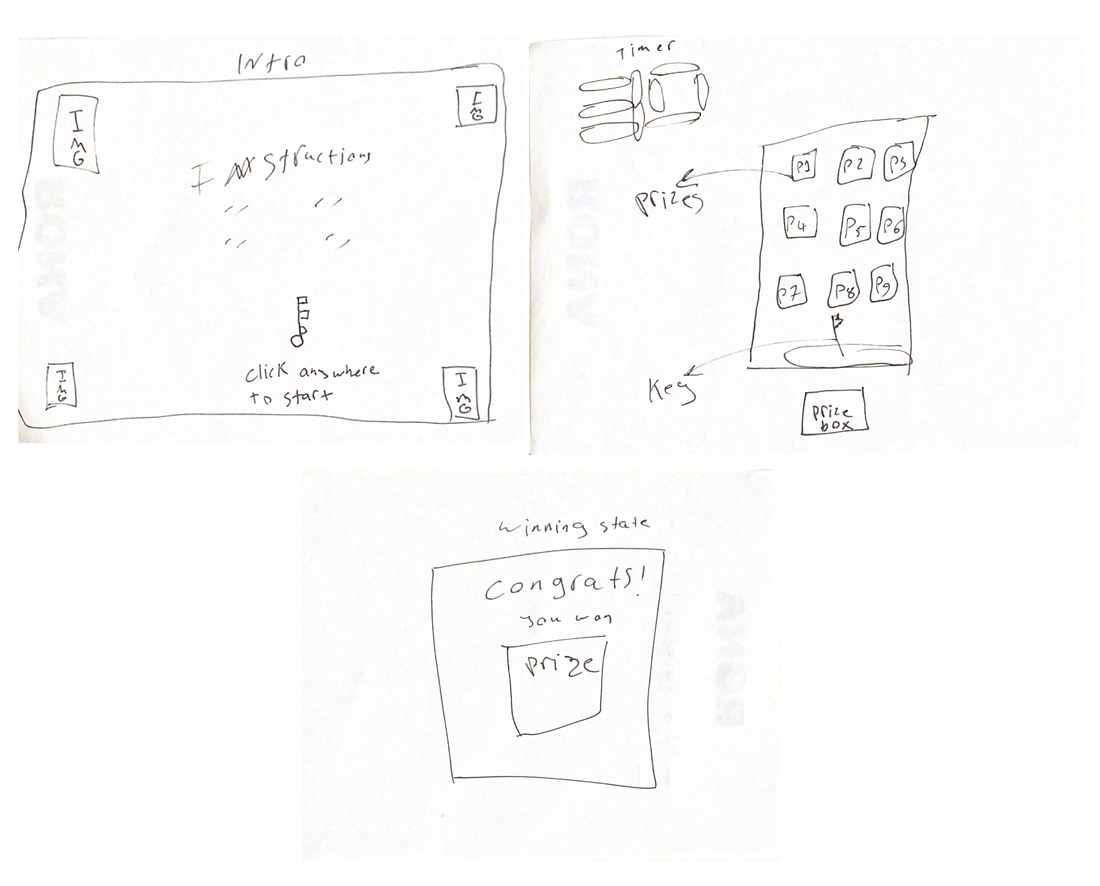 Intro
IMG
IMG
Instructions
click anywhere
to start
IMG
IMG
Timer
P1 P2 P3
prizes
P4 P5 P6
P7 P8 P9
Key
prize
box
winning state
Congrats!
you won
prize
ROMA